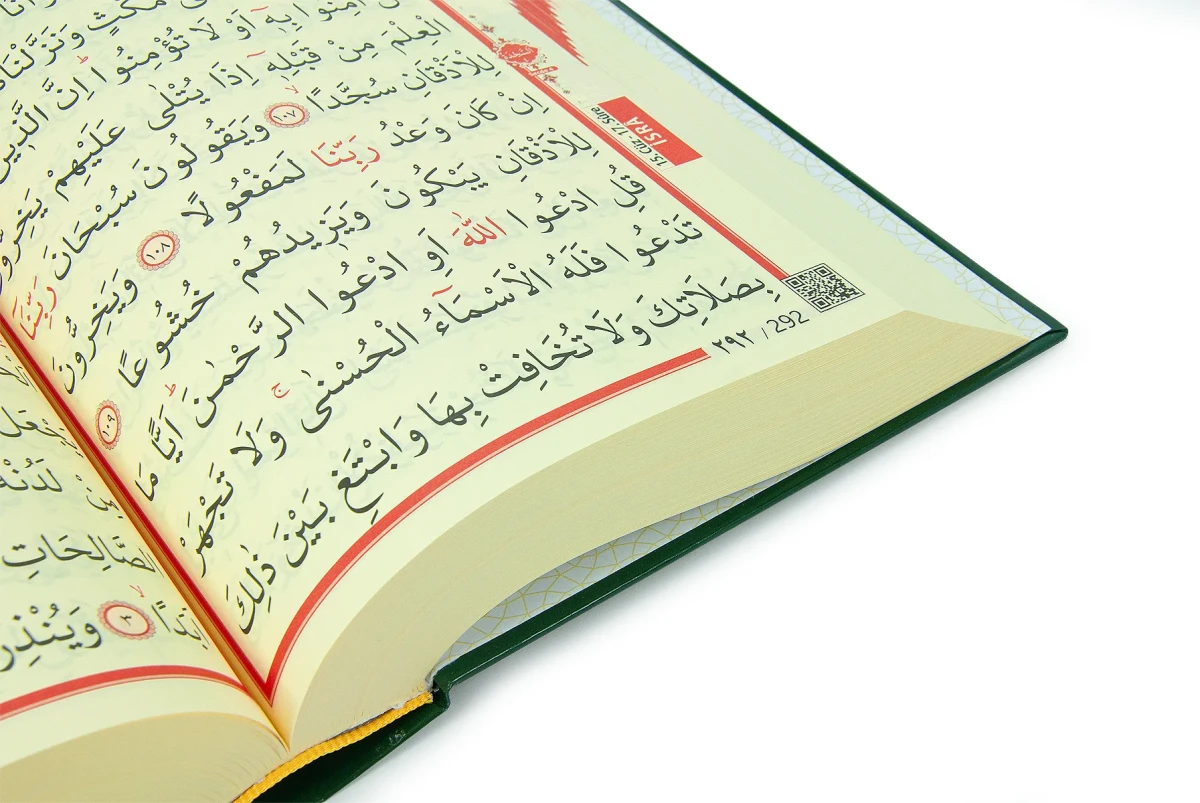 مُكْثٍ وَنَزَّلْنَاهُ
اٰمِنُوا بِهِٓ اَوْ لَا تُؤْمِنُواؕ اِنَّ الَّذِينَ
الْعِلْمَ مِنْ قَبْلِهِٓ اِذَا يُتْلٰى عَلَيْهِمْ يَخِرُّونَ
لِلْاَذْقَانِ سُجَّدًا ﴿١٠٧﴾ وَيَقُولُونَ سُبْحَانَ رَبِّنَٓا
اِنْ كَانَ وَعْدُ رَبِّنَا لَمَفْعُولًا ﴿١٠٨﴾ وَيَخِرُّونَ
لِلْاَذْقَانِ يَبْكُونَ وَيَزِيدُهُمْ خُشُوعًا ﴿١٠٩﴾
قُلِ ادْعُوا اللّٰهَ اَوِ ادْعُوا الرَّحْمٰنَؕ اَيًّا مَا
تَدْعُوا فَلَهُ الْاَسْمَٓاءُ الْحُسْنٰىۚ وَلَا تَجْهَرْ
بِصَلَاتِكَ وَلَا تُخَافِتْ بِهَا وَابْتَغِ بَيْنَ ذٰلِكَ
İSRÂ
15. Cüz - 17. Sûre
٢٩٢ / 292
يَجْعَلْ
مِنْ لَدُنْهُ
الصَّالِحَاتِ
اَبَدًا ﴿٣﴾ وَيُنْذِرَ